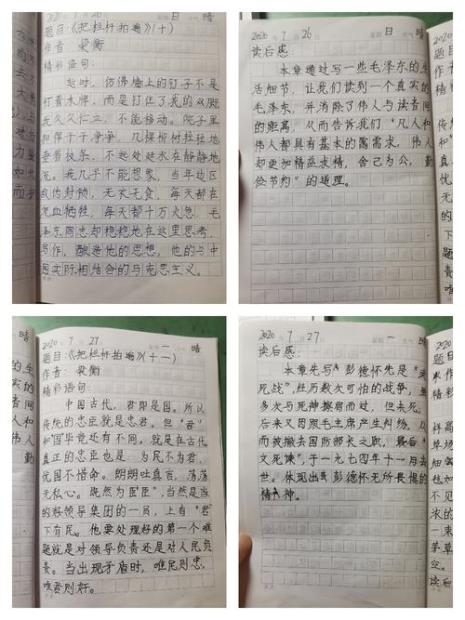 2020 7 26 日 晴
题目:《把栏杆拍遍》(十)
作者 梁衡
精彩语句:
这时,仿佛墙上的钉子不是
打着木牌,而是打住了我的双脚
我久久伫立,不能移动。院子里
扫得干干净净,几棵柳树拉拉地
垂着枝条,不远处延水在静静地
流。我几乎不能想象,当年边区
敌伪封锁,无衣无食,每天都在
流血牺牲,每天都十万火急,毛
泽东同志却稳稳地在这里思考,
写作,酿造他的思想,他的与中
国实际相结合的马克思主义。
2020 7 26 日 晴
读后感
本章通过写一些毛泽东的生
活细节,让我们读到一个真实的
毛泽东,并消除了伟人与读者间
的距离,从而告诉我们“凡人和
伟人都具有基本的需求,伟人
却更加精益求精,舍己为公,勤
俭节约”的道理。
2020 7 27 一 晴
题目:《把栏杆拍遍》(十一)
作者: 梁衡
精彩语句:
中国古代,君即是国。所以
传统的忠臣就是忠君。但“君”
和国毕竟还有不同。就是在古代
真正的忠臣也是 为民不为君,
忧国不惜命。朗朗吐真言,荡荡
无私心。既然为臣,当然是当
的好领导集团的一员,上有“君”
下有民。他要处理好的第一个难
题就是对领导负责还是对人民负
责。当出现矛盾时,唯民则忠,
唯君则奸。
2020 7 27 一 晴
读后感:
本章先写彭德怀先是“武
死战”,经历数次可怕的战争,
多次与死神擦肩而过,但未死。
后来又因跟毛主席产生纠纷,从
而被撤去国防部长之职,最后“
文死谏”,于一九七四年十一月去
世。体现出彭德怀无所畏惧的
精神。